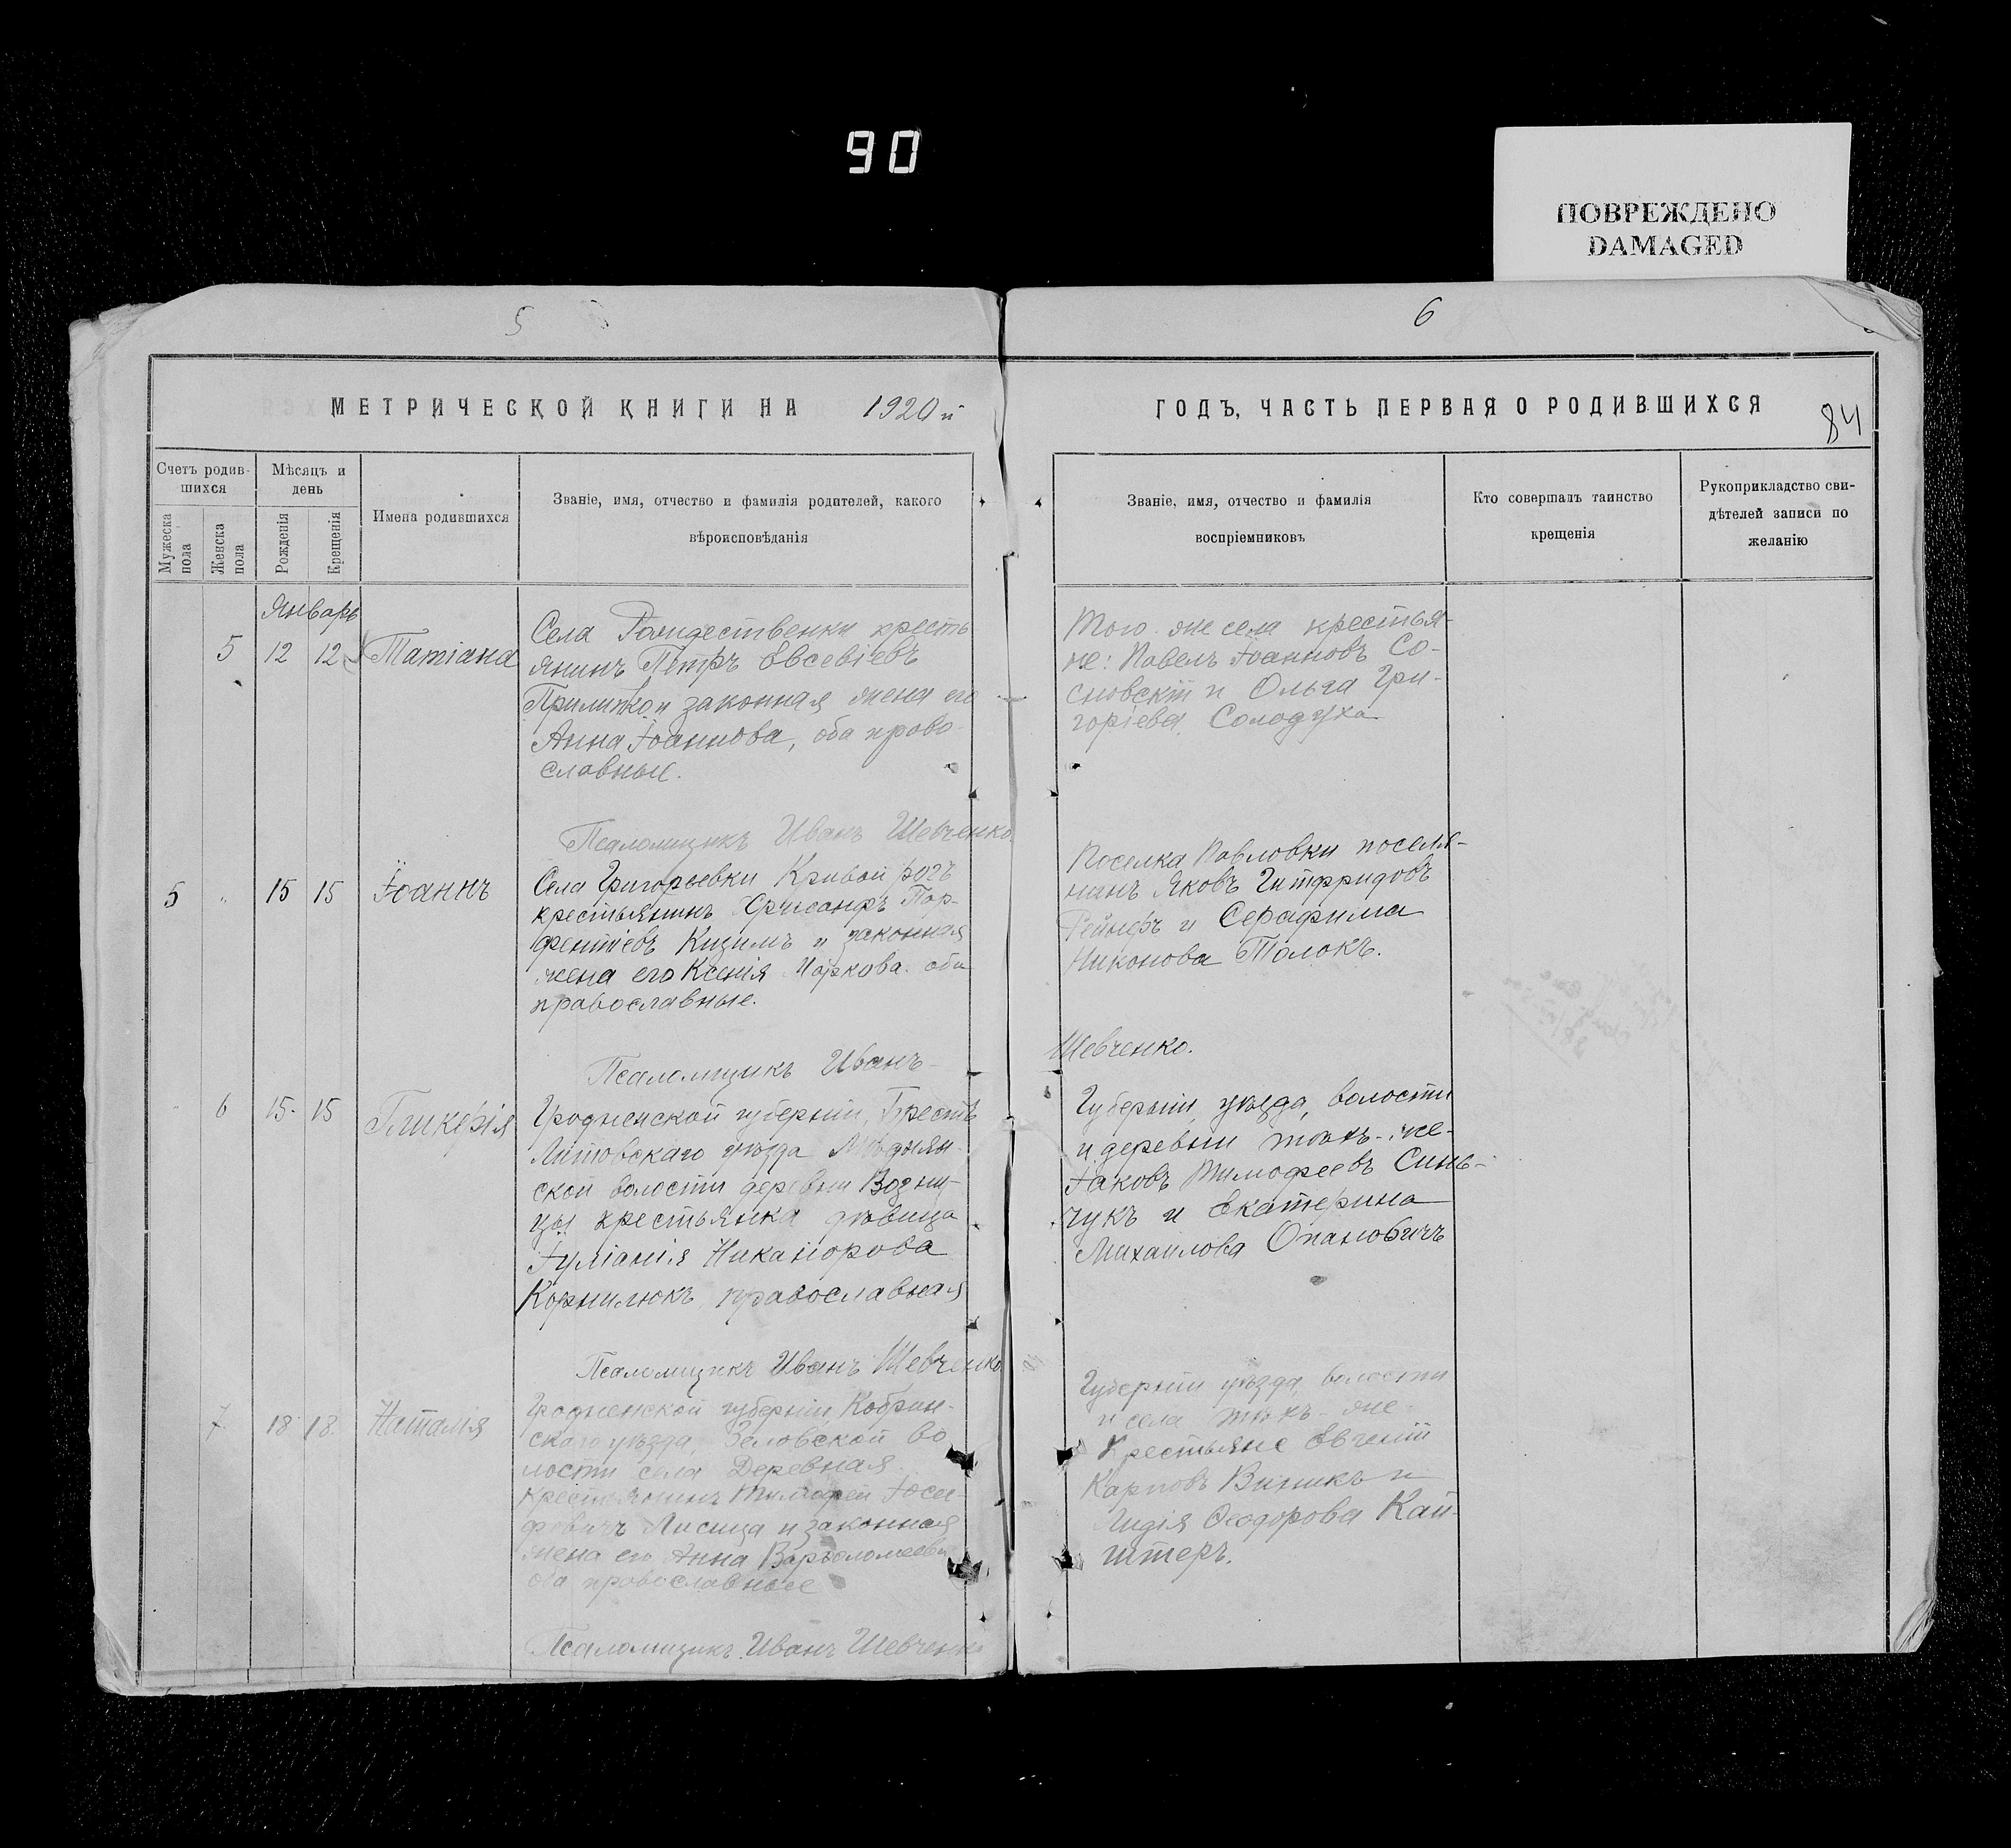 90
ПОВРЕЖДЕНО
DAMAGED
5
6
МЕТРИЧЕСКОЙ КНИГИ НА 1920 й
ГОДЪ, ЧАСТЬ ПЕРВАЯ О РОДИВШИХСЯ
84
Счетъ родив-
шихся
Мужеска
пола
Женска
пола
Мѣсяцъ и
день
Рожденія
Крещенія
Имена родившихся
Званіе, имя, отчество и фамилія родителей, какого
вѣроисповѣданія
Званіе, имя, отчество и фамилія
воспріемниковъ
Кто совершалъ таинство
крещенія
Рукоприкладство сви-
дѣтелей записи по
желанію
Январь
5 12 12 Татіана
Села Рождественки кресть
янинъ Петръ Евсевіевъ
законная жена его
Анна Іоаннова, оба право
славные.
Того же села крестья-
не: Павелъ Іоанновъ Со-
сновскій и Ольга Гри-
горіева Солодуха
Псаломщикъ Иванъ Шевченко.
5 " 15 15 Іоаннъ
Села Григорьевки Кривой рогъ
крестьянинъ Хрисанфъ Пар-
фентіевъ Кизимъ и законная
жена его Ксенія Маркова оба
православные.
Поселка Павловки поселя-
нинъ Яковъ Гитфридовъ
и Серафима
Никонова Толокъ.
Псаломщикъ Иванъ
Шевченко.
6 15 15 Гликерія
Гродненской губерніи, Брестъ
Литовскаго уѣзда
ской волости деревни Возни-
цы крестьянка дѣвица
Іуліанія Никанорова
Корнилюкъ православная
Губерніи, уѣзда, волости
и деревни тѣхъ-же
Іаковъ Тимофеевъ Сень-
чукъ и Екатерина
Михаилова Опановичъ
Псаломщикъ Иванъ Шевченко
7 18 18 Наталія
Гродненской губерніи, Кобрин-
скаго уѣзда, Зеловской во
лости села Деревная
крестьянинъ Тимофей Іоси-
фовичъ Лисица и законная
жена его Анна Варѳоломеева
оба православные
Губерніи уѣзда, волости
и села тѣхъ-же
Крестьяне Евгеній
Карповъ Виникъ и
Лидія Ѳеодорова Кай-
штеръ.
Псаломщикъ Иванъ Шевченко